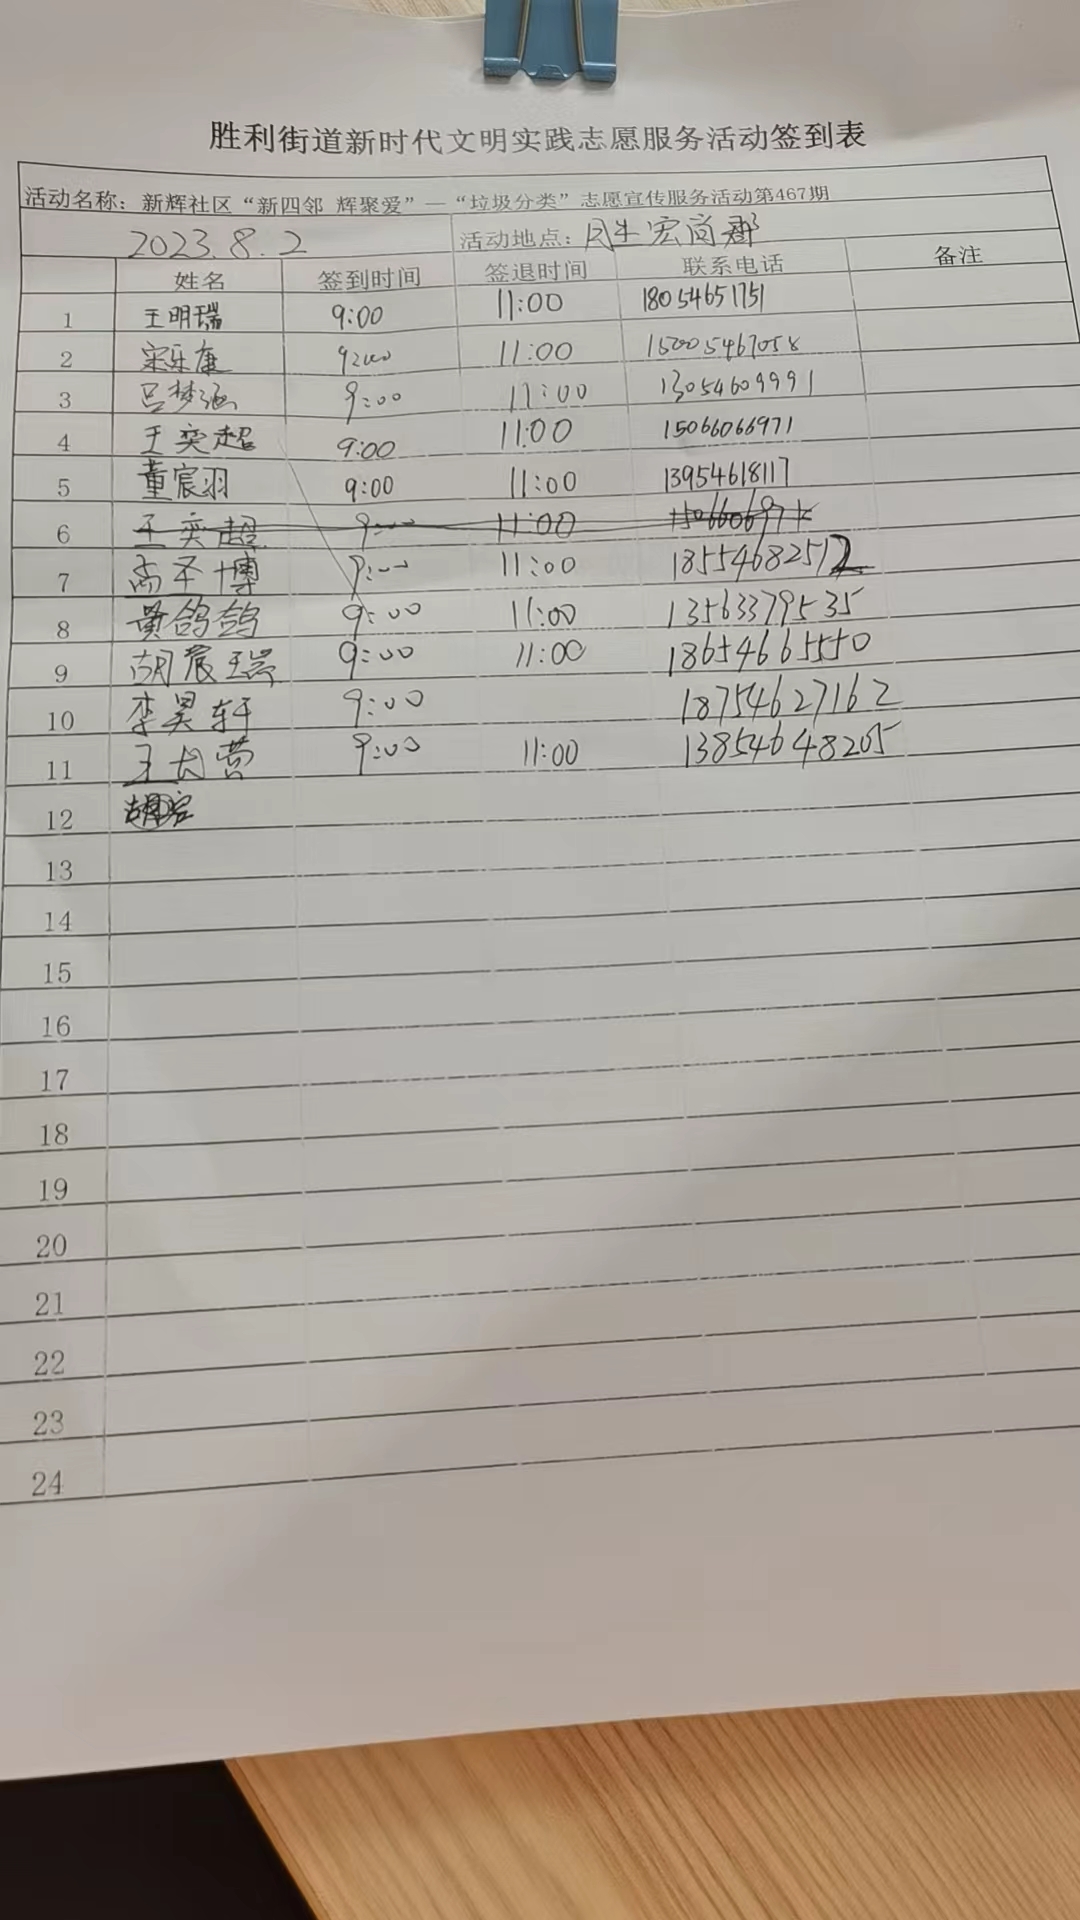 胜利街道新时代文明实践志愿服务活动签到表
活动名称：新辉社区“新四邻 辉聚爱”—“垃圾分类”志愿宣传服务活动第467期
2023.8.2 活动地点：宏尚郡
姓名 签到时间 签退时间 联系电话 备注
1 王明瑞 9:00 11:00 18054651751
2 宋乐康 9:00 11:00 15005467058
3 吕梦涵 9:00 11:00 13054609991
4 王奕超 9:00 11:00 15066066971
5 董宸羽 9:00 11:00 13954618117
6 王奕超 9:00 11:00
7 高圣博 9:00 11:00 18554682512
8 黄鸽鸽 9:00 11:00 13563379535
9 胡宸瑞 9:00 11:00 18654665550
10 李昊轩 9:00 18754627162
11 王大营 9:00 11:00 13854648205
12
13
14
15
16
17
18
19
20
21
22
23
24